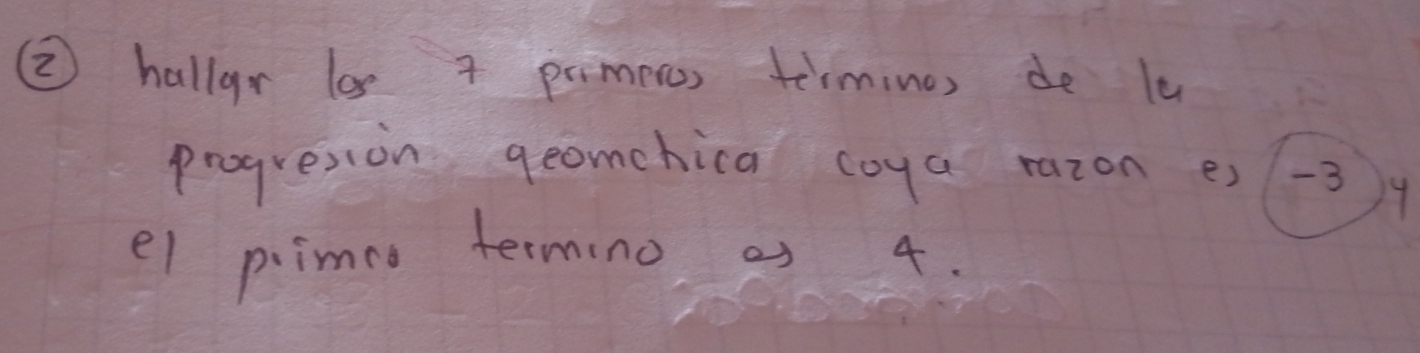 ② hallar los 7 primeros términos de la
progresión geometrica coya razon es -3 y
el primer termino es 4.